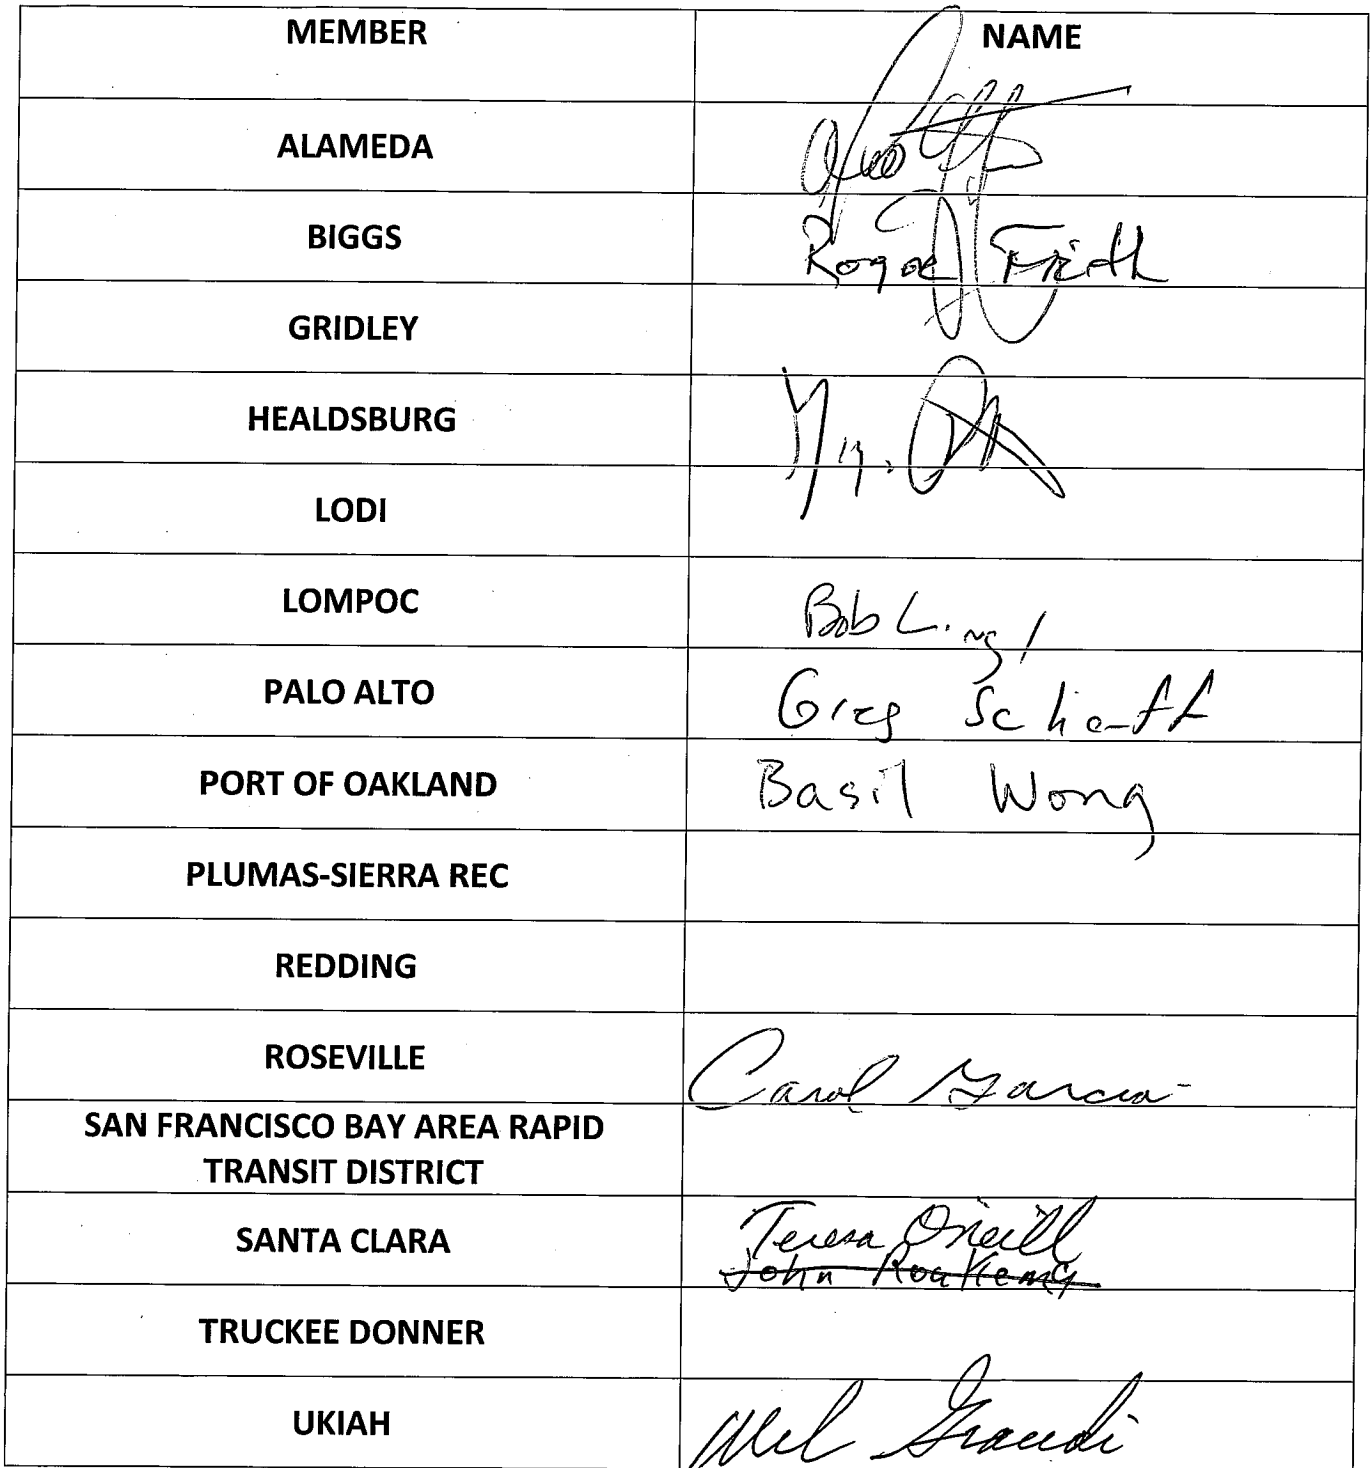 MEMBER NAME
ALAMEDA
BIGGS Roger
GRIDLEY
HEALDSBURG
LODI
LOMPOC Bob
PALO ALTO Greg Scharff
PORT OF OAKLAND Basil Wong
PLUMAS-SIERRA REC
REDDING
ROSEVILLE Carol Garcia
SAN FRANCISCO BAY AREA RAPID
TRANSIT DISTRICT
SANTA CLARA Teresa Oneill
John
TRUCKEE DONNER
UKIAH Mel Grandi